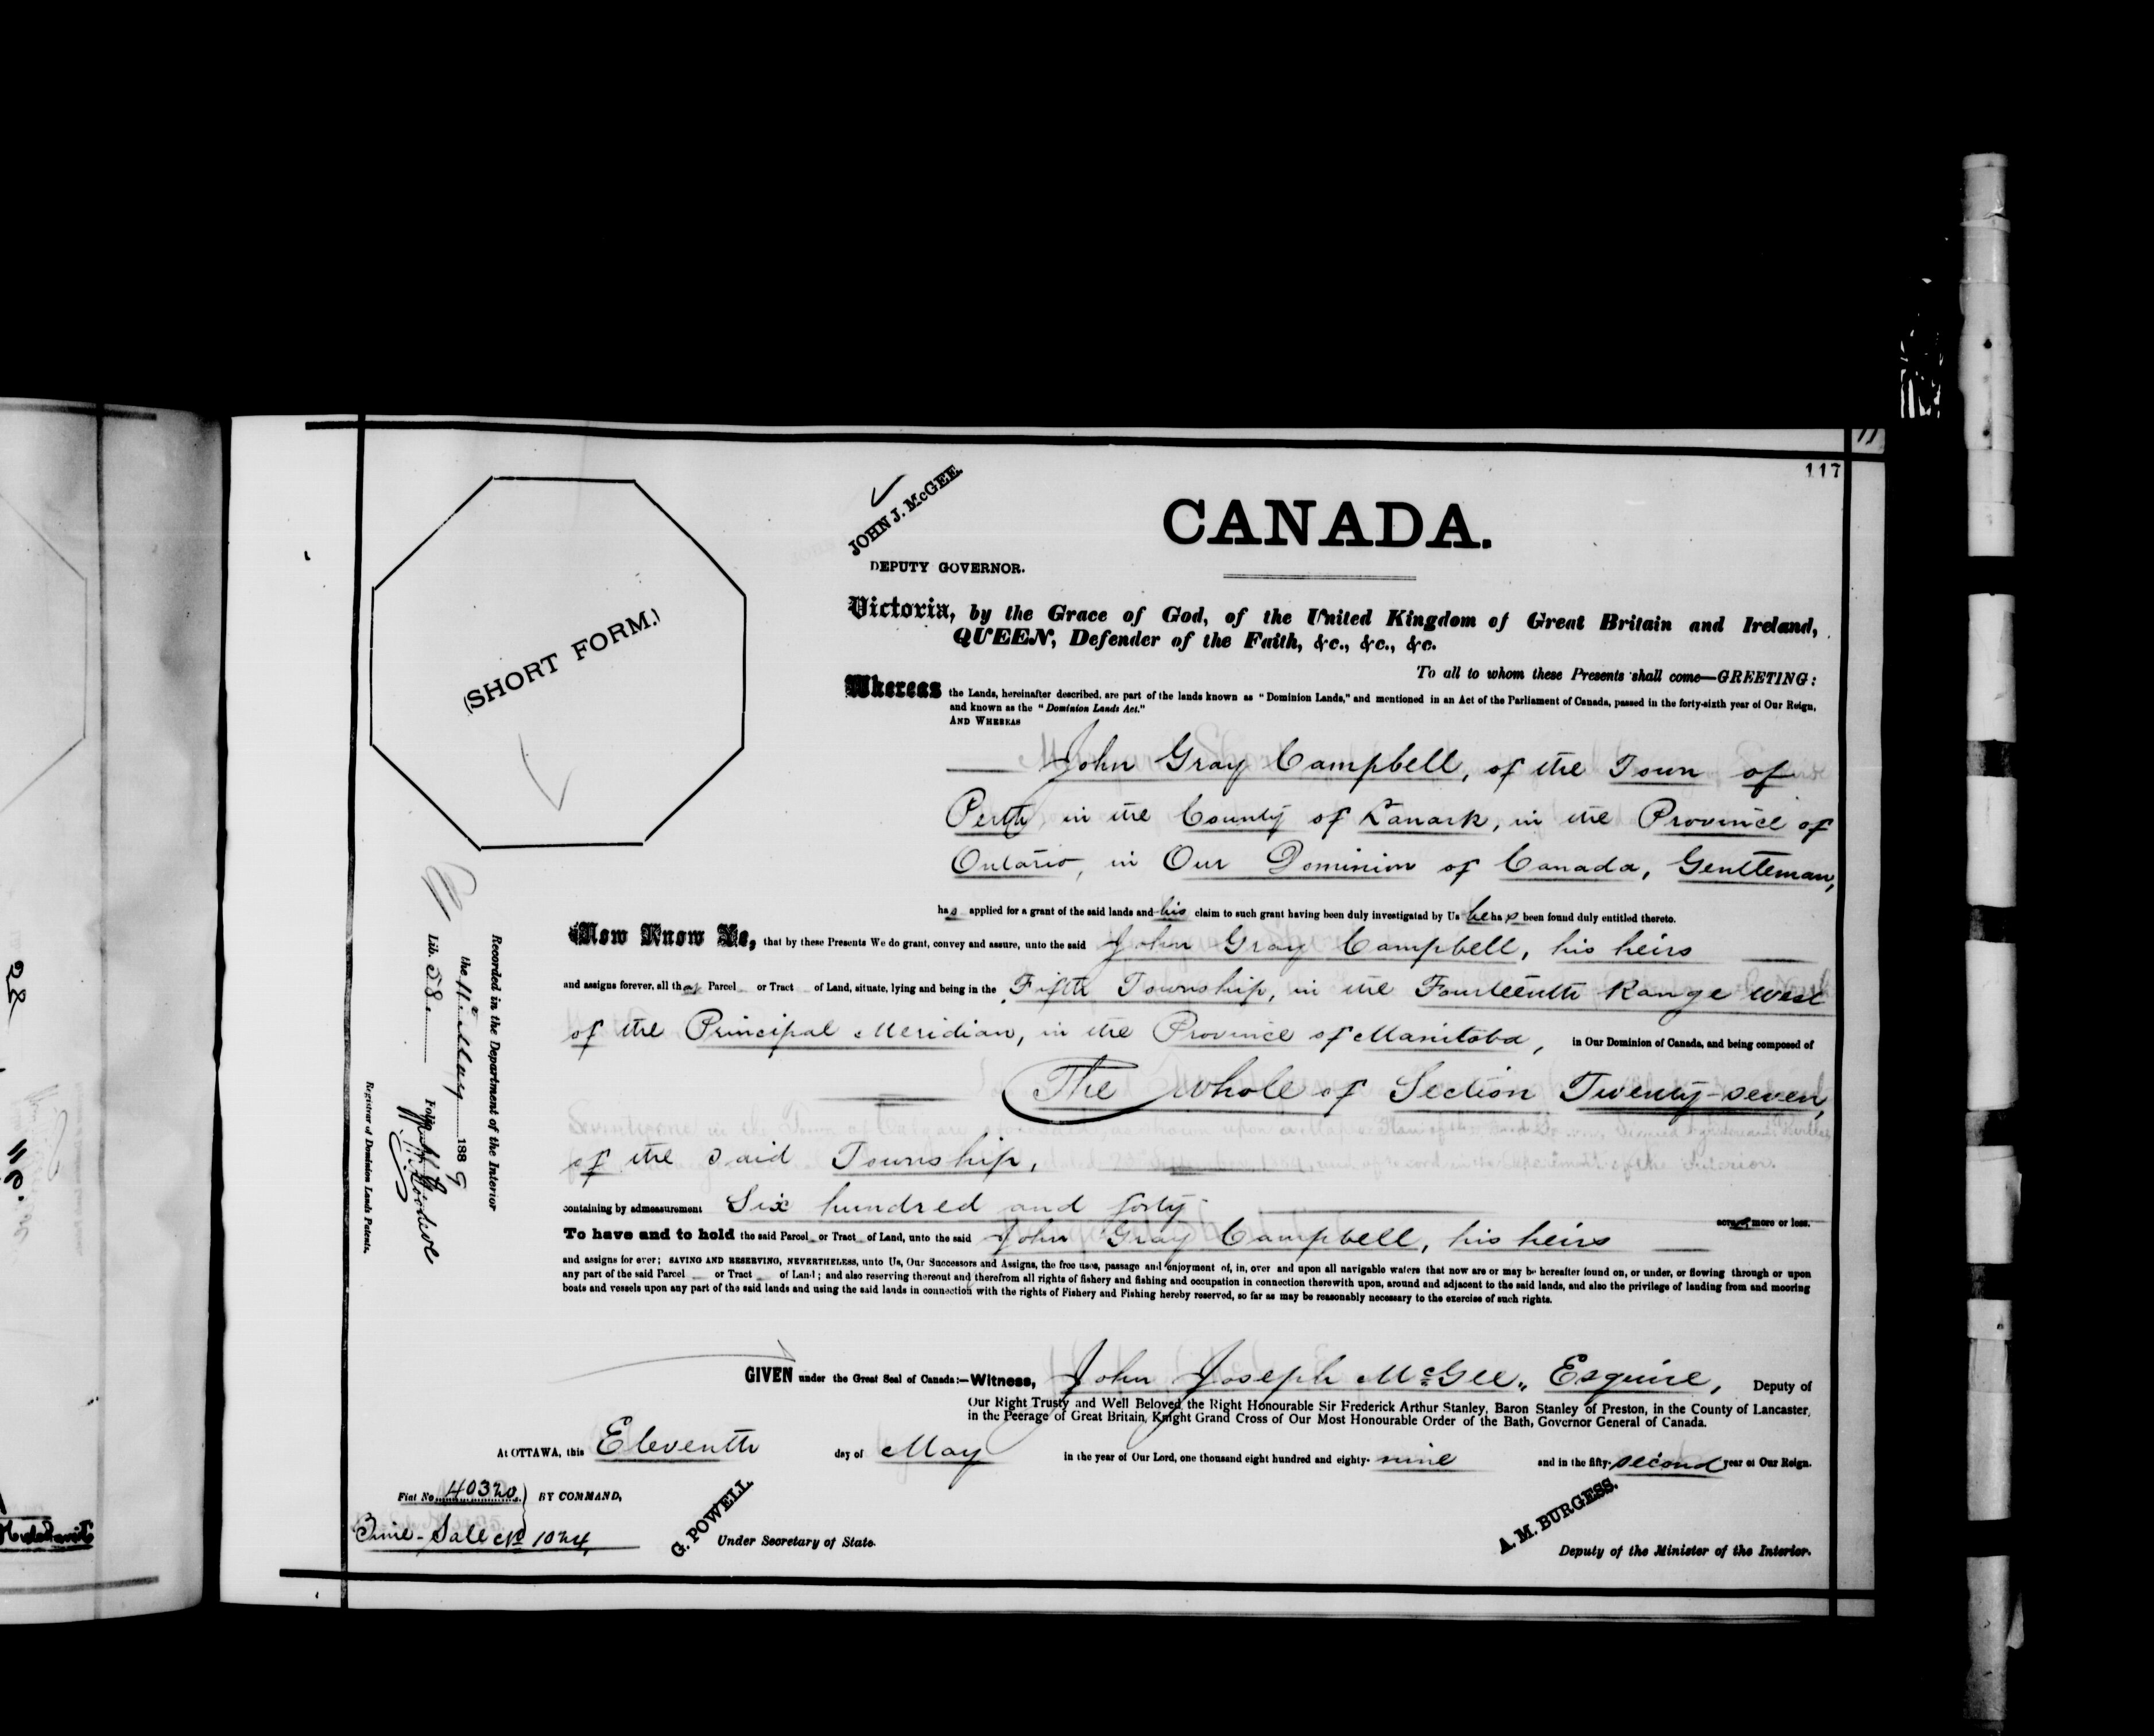 117
JOHN J. McGEE.
DEPUTY GOVERNOR.
CANADA.
(SHORT FORM.)
Victoria, by the Grace of God, of the United Kingdom of Great Britain and Ireland,
QUEEN, Defender of the Faith, &c., &c., &c.
To all to whom these Presents shall come—GREETING:
Whereas the Lands, hereinafter described, are part of the lands known as "Dominion Lands," and mentioned in an Act of the Parliament of Canada, passed in the forty-sixth year of Our Reign,
and known as the "Dominion Lands Act."
AND WHEREAS
John Gray Campbell, of the Town of
Perth, in the County of Lanark, in the Province of
Ontario, in Our Dominion of Canada, Gentleman,
has applied for a grant of the said lands and his claim to such grant having been duly investigated by Us he has been found duly entitled thereto.
Now Know Ye, that by these Presents We do grant, convey and assure, unto the said John Gray Campbell, his heirs
and assigns forever, all that Parcel or Tract of Land, situate, lying and being in the Fifth Township, in the Fourteenth Range west
of the Principal Meridian, in the Province of Manitoba, in Our Dominion of Canada, and being composed of
The whole of Section Twenty-seven,
of the said Township,
containing by admeasurement Six hundred and forty acres, more or less.
To have and to hold the said Parcel or Tract of Land, unto the said John Gray Campbell, his heirs
and assigns for ever; SAVING AND RESERVING, NEVERTHELESS, unto Us, Our Successors and Assigns, the free uses, passage and enjoyment of, in, over and upon all navigable waters that now are or may be hereafter found on, or under, or flowing through or upon
any part of the said Parcel or Tract of Land; and also reserving thereout and therefrom all rights of fishery and fishing and occupation in connection therewith upon, around and adjacent to the said lands, and also the privilege of landing from and mooring
boats and vessels upon any part of the said lands and using the said lands in connection with the rights of Fishery and Fishing hereby reserved, so far as may be reasonably necessary to the exercise of such rights.
GIVEN under the Great Seal of Canada:—Witness, John Joseph McGee, Esquire, Deputy of
Our Right Trusty and Well Beloved the Right Honourable Sir Frederick Arthur Stanley, Baron Stanley of Preston, in the County of Lancaster,
in the Peerage of Great Britain, Knight Grand Cross of Our Most Honourable Order of the Bath, Governor General of Canada.
At OTTAWA, this Eleventh day of May in the year of Our Lord, one thousand eight hundred and eighty-nine and in the fifty-second year of Our Reign.
Fiat No. 40320 BY COMMAND,
Sale No 1024
G. POWELL
Under Secretary of State.
A. M. BURGESS.
Deputy of the Minister of the Interior.
Recorded in the Department of the Interior
the 11th May 1889
Lib. 58. Folio
Registrar of Dominion Lands Patents.